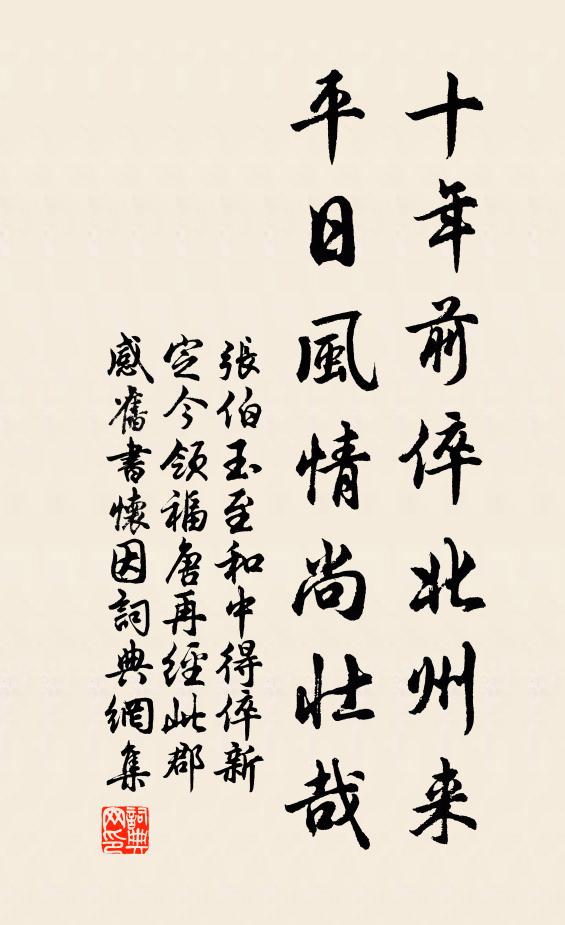 十年前倅北州来
平日風情尚壯哉
張伯玉至和中得倅新
定今領福唐再經此郡
感舊書懷因詞典網集
詞典网印